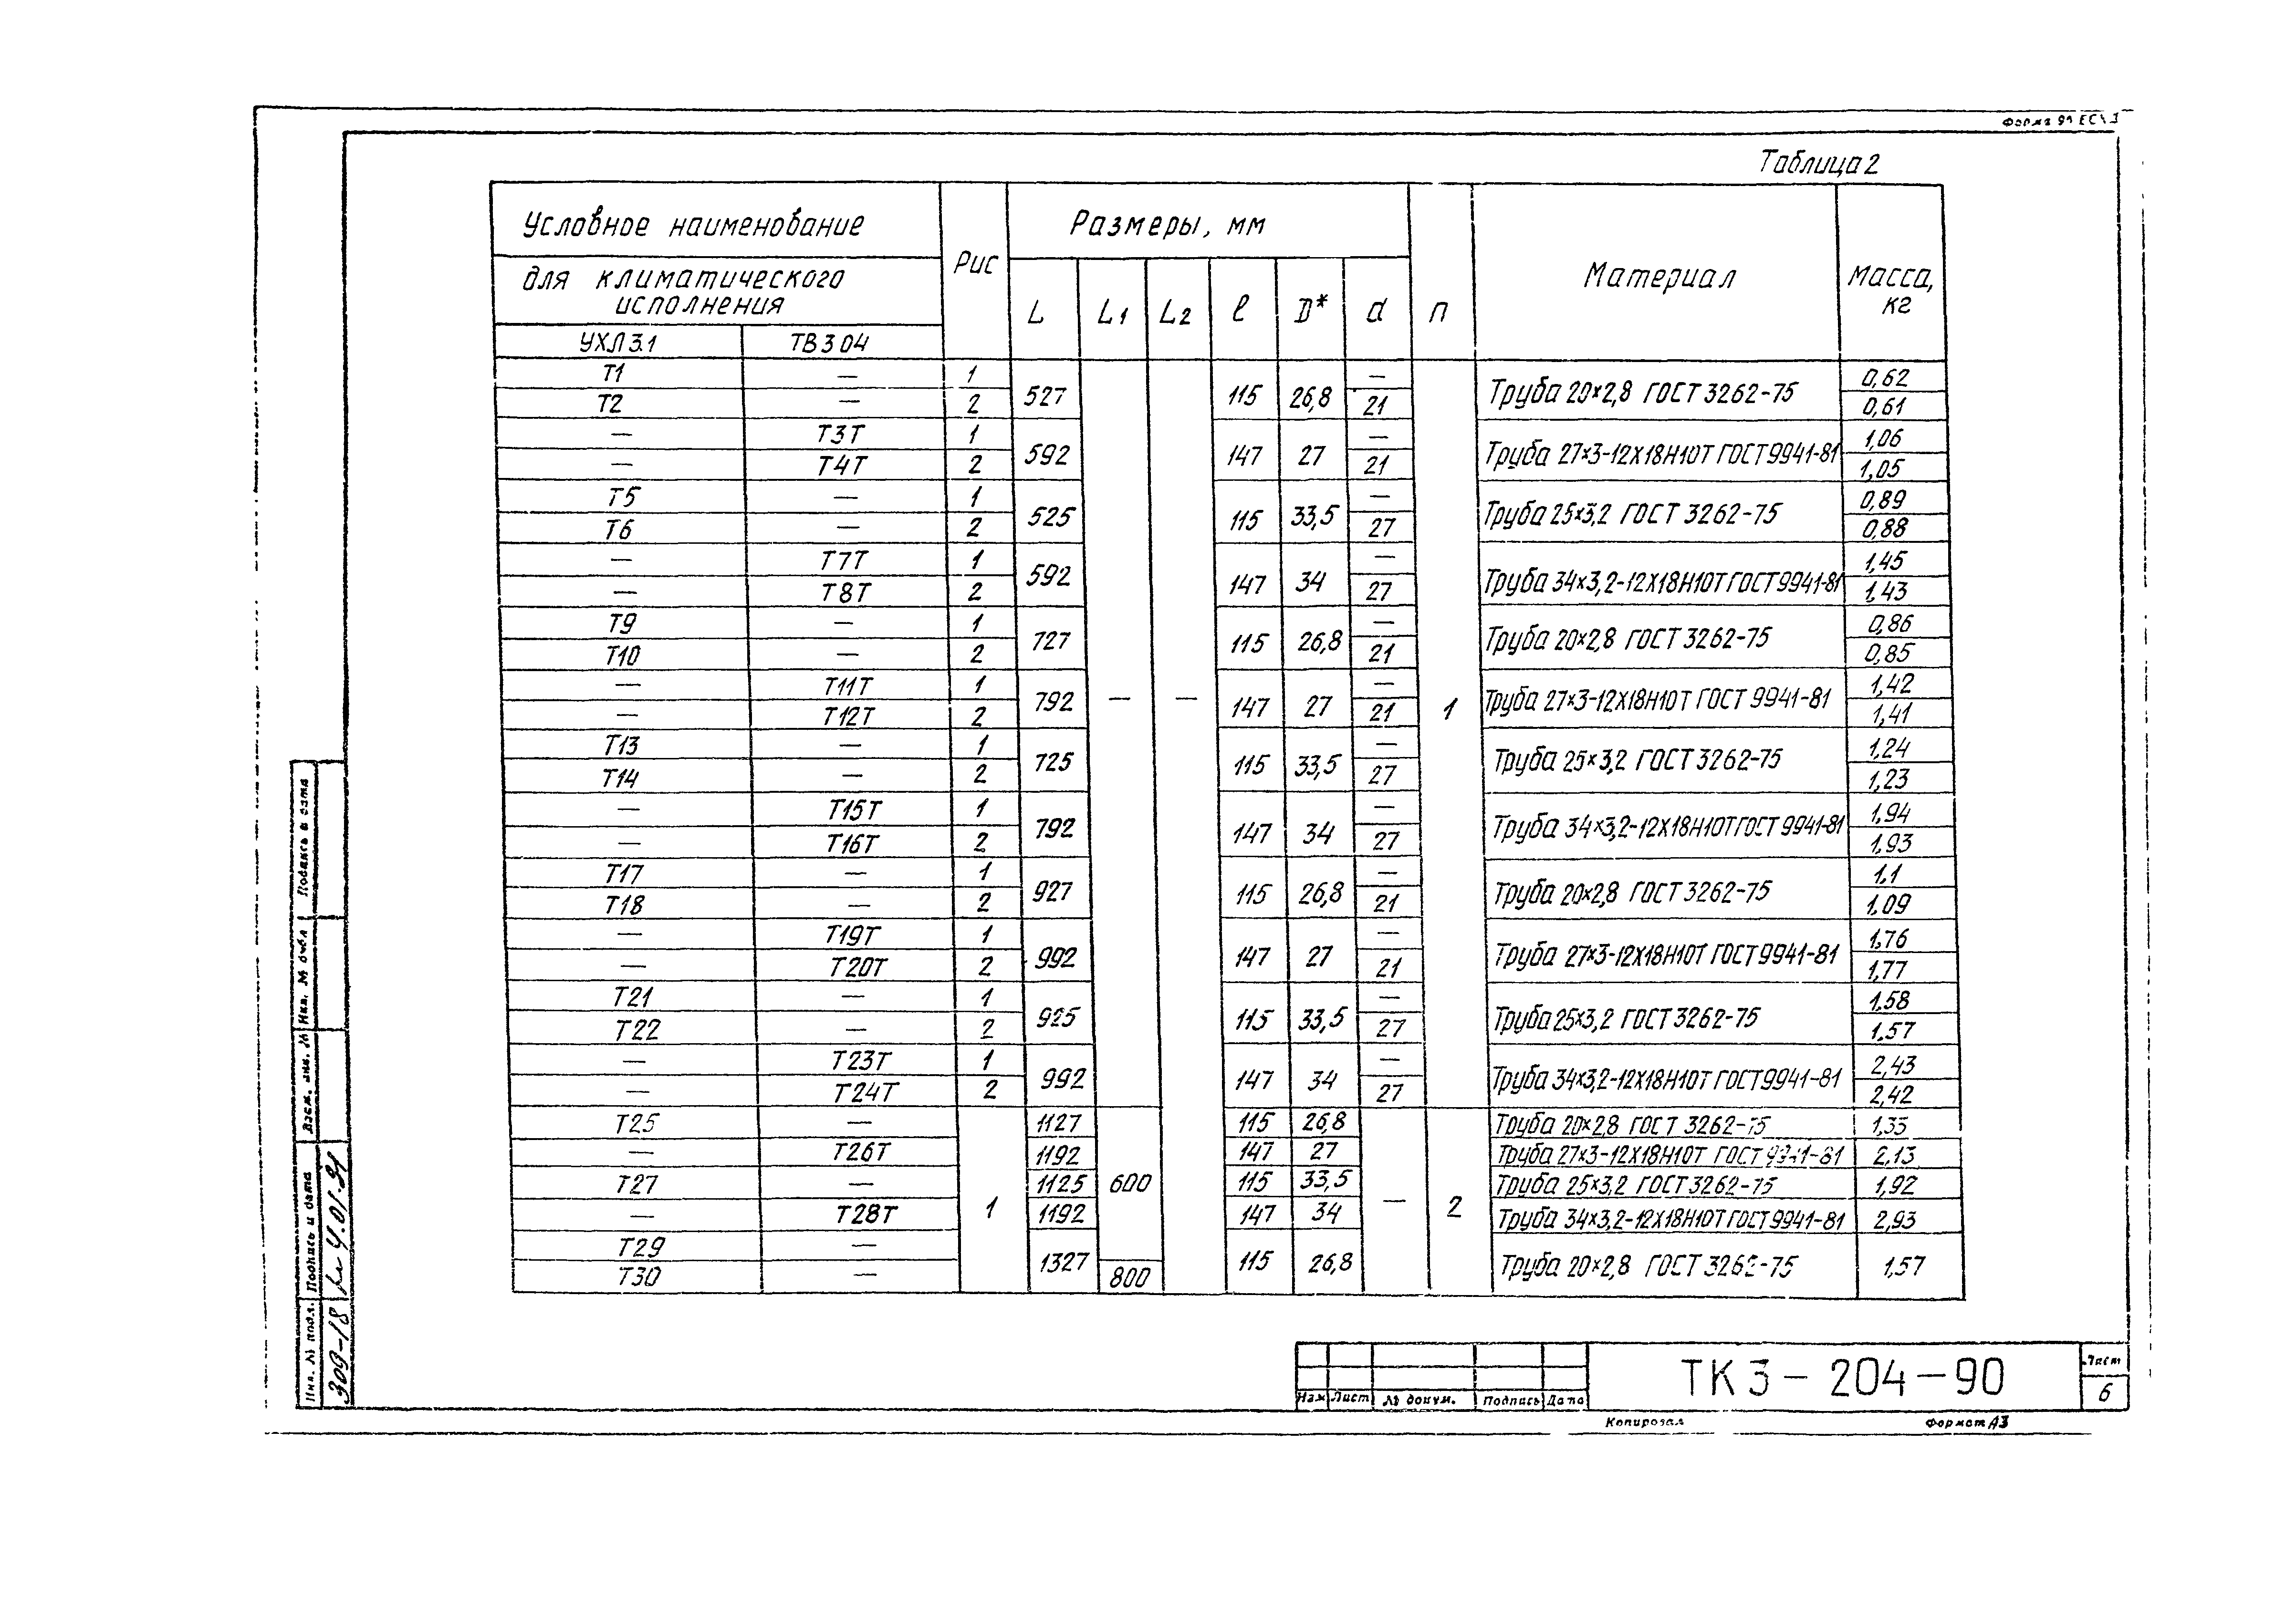 Форма 9а ЕСКД
Таблица 2
Условное наименование для климатического исполнения | Рис | Размеры, мм | n | Материал | Масса, кг
УХЛ 3.1 | ТВ 3 04 | L | L1 | L2 | ℓ | D* | d
Т1 — 1 527 — — 115 26,8 — 1 Труба 20×2,8 ГОСТ 3262-75 0,62
Т2 — 2 21 0,61
— Т3Т 1 592 147 27 — Труба 27×3-12Х18Н10Т ГОСТ 9941-81 1,06
— Т4Т 2 21 1,05
Т5 — 1 525 115 33,5 — Труба 25×3,2 ГОСТ 3262-75 0,89
Т6 — 2 27 0,88
— Т7Т 1 592 147 34 — Труба 34×3,2-12Х18Н10Т ГОСТ 9941-81 1,45
— Т8Т 2 27 1,43
Т9 — 1 727 115 26,8 — Труба 20×2,8 ГОСТ 3262-75 0,86
Т10 — 2 21 0,85
— Т11Т 1 792 147 27 — Труба 27×3-12Х18Н10Т ГОСТ 9941-81 1,42
— Т12Т 2 21 1,41
Т13 — 1 725 115 33,5 — Труба 25×3,2 ГОСТ 3262-75 1,24
Т14 — 2 27 1,23
— Т15Т 1 792 147 34 — Труба 34×3,2-12Х18Н10Т ГОСТ 9941-81 1,94
— Т16Т 2 27 1,93
Т17 — 1 927 115 26,8 — Труба 20×2,8 ГОСТ 3262-75 1,1
Т18 — 2 21 1,09
— Т19Т 1 992 147 27 — Труба 27×3-12Х18Н10Т ГОСТ 9941-81 1,76
— Т20Т 2 21 1,77
Т21 — 1 925 115 33,5 — Труба 25×3,2 ГОСТ 3262-75 1,58
Т22 — 2 27 1,57
— Т23Т 1 992 147 34 — Труба 34×3,2-12Х18Н10Т ГОСТ 9941-81 2,43
— Т24Т 2 27 2,42
Т25 — 1 1127 600 115 26,8 — 2 Труба 20×2,8 ГОСТ 3262-75 1,33
— Т26Т 1192 147 27 Труба 27×3-12Х18Н10Т ГОСТ 9941-81 2,13
Т27 — 1125 115 33,5 Труба 25×3,2 ГОСТ 3262-75 1,92
— Т28Т 1192 147 34 Труба 34×3,2-12Х18Н10Т ГОСТ 9941-81 2,93
Т29 — 1327 115 26,8 Труба 20×2,8 ГОСТ 3262-75 1,57
Т30 — 800
Подпись и дата
Инв. № дубл
Взам. инв. №
Подпись и дата
4.01.91
Инв. № подл.
309-18
Изм Лист № докум. Подпись Дата
ТК 3 – 204 – 90
Лист
6
Копировал
Формат А3